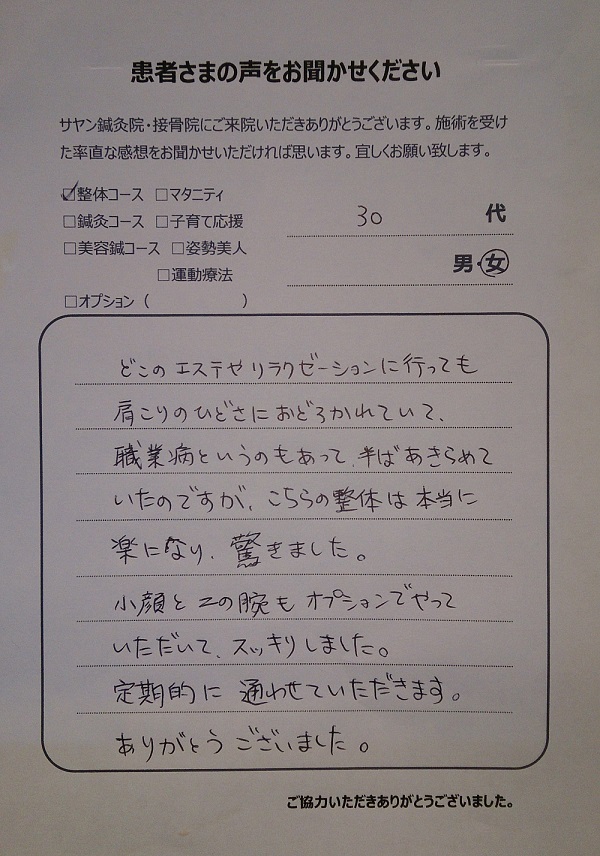 患者さまの声をお聞かせください
サヤン鍼灸院・接骨院にご来院いただきありがとうございます。施術を受け
た率直な感想をお聞かせいただければ思います。宜しくお願い致します。
☑整体コース □マタニティ
□鍼灸コース □子育て応援
30 代
□美容鍼コース □姿勢美人
男・女
□運動療法
□オプション（ ）
どこのエステやリラクゼーションに行っても
肩こりのひどさにおどろかれていて、
職業病というのもあって、半ばあきらめて
いたのですが、こちらの整体は本当に
楽になり、驚きました。
小顔と二の腕もオプションでやって
いただいて、スッキリしました。
定期的に通わせていただきます。
ありがとうございました。
ご協力いただきありがとうございました。